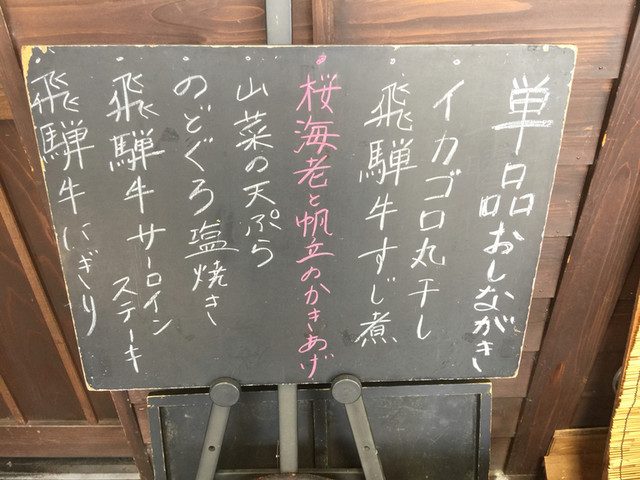 単品おしながき
イカゴロ丸干し
飛騨牛すじ煮
桜海老と帆立のかきあげ
山菜の天ぷら
のどぐろ塩焼き
飛騨牛サーロイン
ステーキ
飛騨牛にぎり